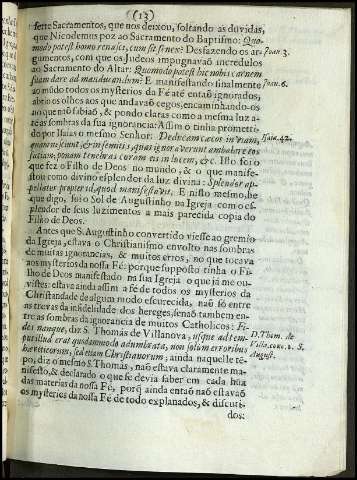 (13)
sete Sacramentos, que nos deixou, soltando as duvidas,
que Nicodemus poz ao Sacramento do Baptismo: Quo-
modo potest homo renasci, cum sit senex? Desfazendo os ar-
Joan 3.
gumentos, com que os Judeos impugnavaõ incredulos
ao Sacramento do Altar: Quomodo potest hic nobis carnem
suam dare ad manducandum? E manifestando finalmente
Joan. 6.
ao mũdo todos os mysterios da Fé até entaõ ignorados,
abrio os olhos aos que andavaõ cegos, encaminhando-os
ao que naõ sabiaõ, & pondo claras como a mesma luz a-
as sombras da sua ignorancia: Assim o tinha prometti-
do por Isaias o mesmo Senhor: Deducam cæcos in viam,
Isai. 42.
quam nesciunt, & in semitis, quas ignoraverunt ambulare eos
faciam; ponam tenebras coram eis in lucem, &c. Isto foi o
que fez o Filho de Deos no mundo, & o que manife-
stou como divino esplendor da luz divina: Splendor ap-
pellatur propter id, quod manifestavit. E nisto mesmo, he
que digo, foi o Sol de Augustinho na Igreja com o es-
plendor de seus luzimentos a mais parecida copia do
Filho de Deos.
Antes que S. Augustinho convertido viesse ao gremio
da Igreja, estava o Christianismo envolto nas sombras
de muitas ignorancias, & muitos erros, no que tocava
aos mysterios da nossa Fé: porque supposto tinha o Fi-
lho de Deos manifestado na sua Igreja o que já me ou-
vistes: estava ainda assim a fé de todos os mysterios da
Christandade de algum modo escurecida, naõ só entre
as trevas da infidelidade dos hereges, senaõ tambem en-
tre as sombras da ignorancia de muitos Catholicos: Fi-
des nanque, diz S. Thomàs de Villanova, usque ad tem-
D. Thom. de
pus illud erat quodammodo adumbrata, non solum erroribus
Villa. conc. 2. S.
hæreticorum, sed etiam Christianorum; ainda naquelle tẽ-
August.
po, diz o mesmo S. Thomàs, naõ estava claramente ma-
nifesto, & declarado o que se devia saber em cada hũa
das materias da nossa Fé, porq̃ ainda entaõ naõ estavaõ
os mysterios da nossa Fé de todo explanados, & discuti-
dos: